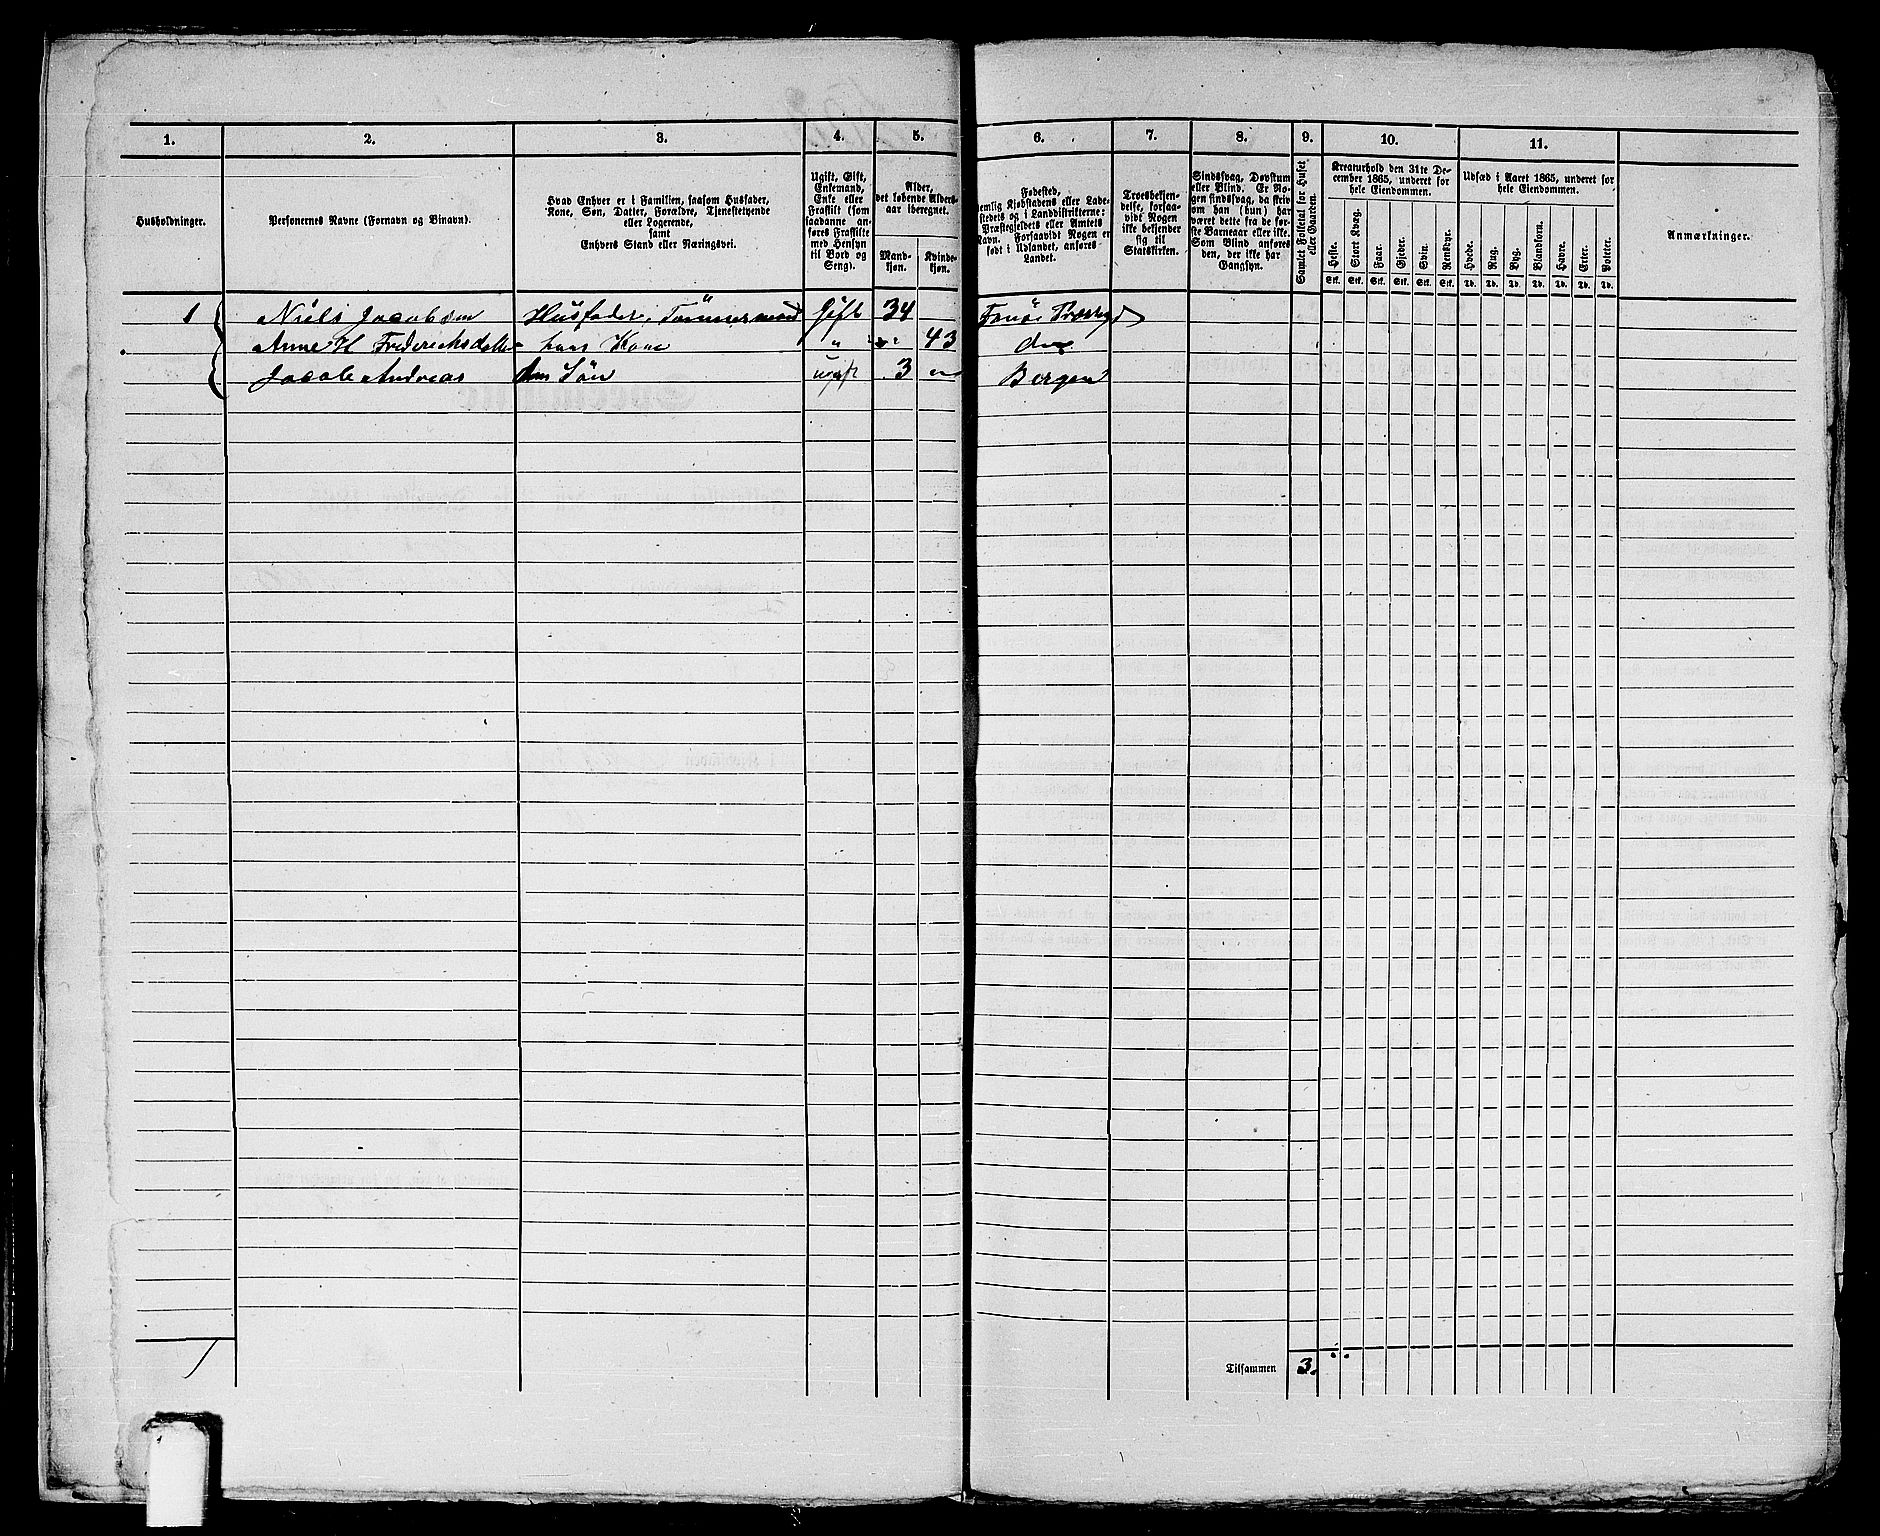 1. 2. 3. 4. 5. 6. 7. 8. 9. 10. 11.
Husholdninger.
Personernes Navne (Fornavn og Binavn).
Hvad Enhver er i Familien, saasom Husfader,
Kone, Søn, Datter, Forældre, Tjenestetyende
eller Logerende,
samt
Enhvers Stand eller Næringsvei.
Ugift, Gift,
Enkemand,
Enke eller
Fraskilt (som
saadanne an-
føres Fraskilte
med Hensyn
til Bord og
Seng).
Alder,
det løbende Alders-
aar iberegnet.
Mand-
kjøn.
Kvinde-
kjøn.
Fødested,
nemlig Kjøbstadens eller Lade-
stedets og i Landdistrikterne:
Præstegjeldets eller Amtets
Navn. Forsaavidt Nogen er
født i Udlandet, anføres
Landet.
Troesbekjen-
delse, forsaa-
vidt Nogen
ikke bekjender
sig til
Statskirken.
Sindssvag, Døvstum
eller Blind. Er No-
gen sindssvag, da skriv
om han (hun) har
været dette fra de før-
ste Barneaar eller ikke.
Som Blind anføres
den, der ikke har
Gangsyn.
Samlet Folketal for Huset
eller Gaarden.
Kreaturhold den 31te De-
cember 1865, underet for
hele Eiendommen.
Heste. Stort Kvæg. Faar. Gjeder. Svin. Rensdyr.
Stk. Stk. Stk. Stk. Stk. Stk.
Udsæd i Aaret 1865, underet for
hele Eiendommen.
Hvede. Rug. Byg. Blandkorn. Havre. Erter. Poteter.
Td. Td. Td. Td. Td. Td. Td.
Anmærkninger.
1 Niels Jacobsen Husfader, Tømmermand Gift 34 Fanøe Præstegd
Anne H Frederichsdatter hans Kone " " 43 do
Jacob Andreas Søn ugift 3 Bergen
1
Tilsammen 3.